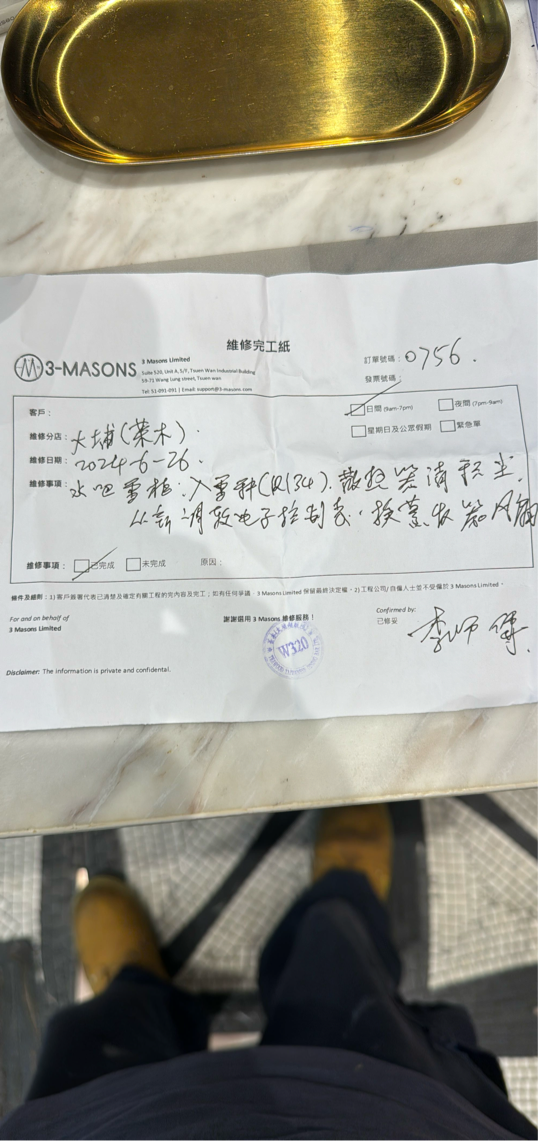 維修完工紙
3-MASONS
3 Masons Limited
Suite 520, Unit A, 5/F, Tsuen Wan Industrial Building
59-71 Wang Lung street, Tsuen wan
Tel: 51-091-091 | Email: support@3-masons.com
訂單號碼：0756.
發票號碼：
客戶：
日間 (9am-7pm)
夜間 (7pm-9am)
星期日及公眾假期
緊急單
維修分店：大埔(茶木).
維修日期：2024-6-26.
維修事項：水吧雪柜.入雪种(R134).散热器清积尘.
从新调较电子控制表.换蒸发器风扇
維修事項：
已完成
未完成
原因：
條件及細則：1) 客戶簽署代表已清楚及確定有關工程的完內容及完工；如有任何爭議，3 Masons Limited 保留最終決定權。2) 工程公司/自僱人士並不受僱於 3 Masons Limited。
For and on behalf of
3 Masons Limited
謝謝選用 3 Masons 維修服務！
Confirmed by:
已修妥
W320
Disclaimer: The information is private and confidental.